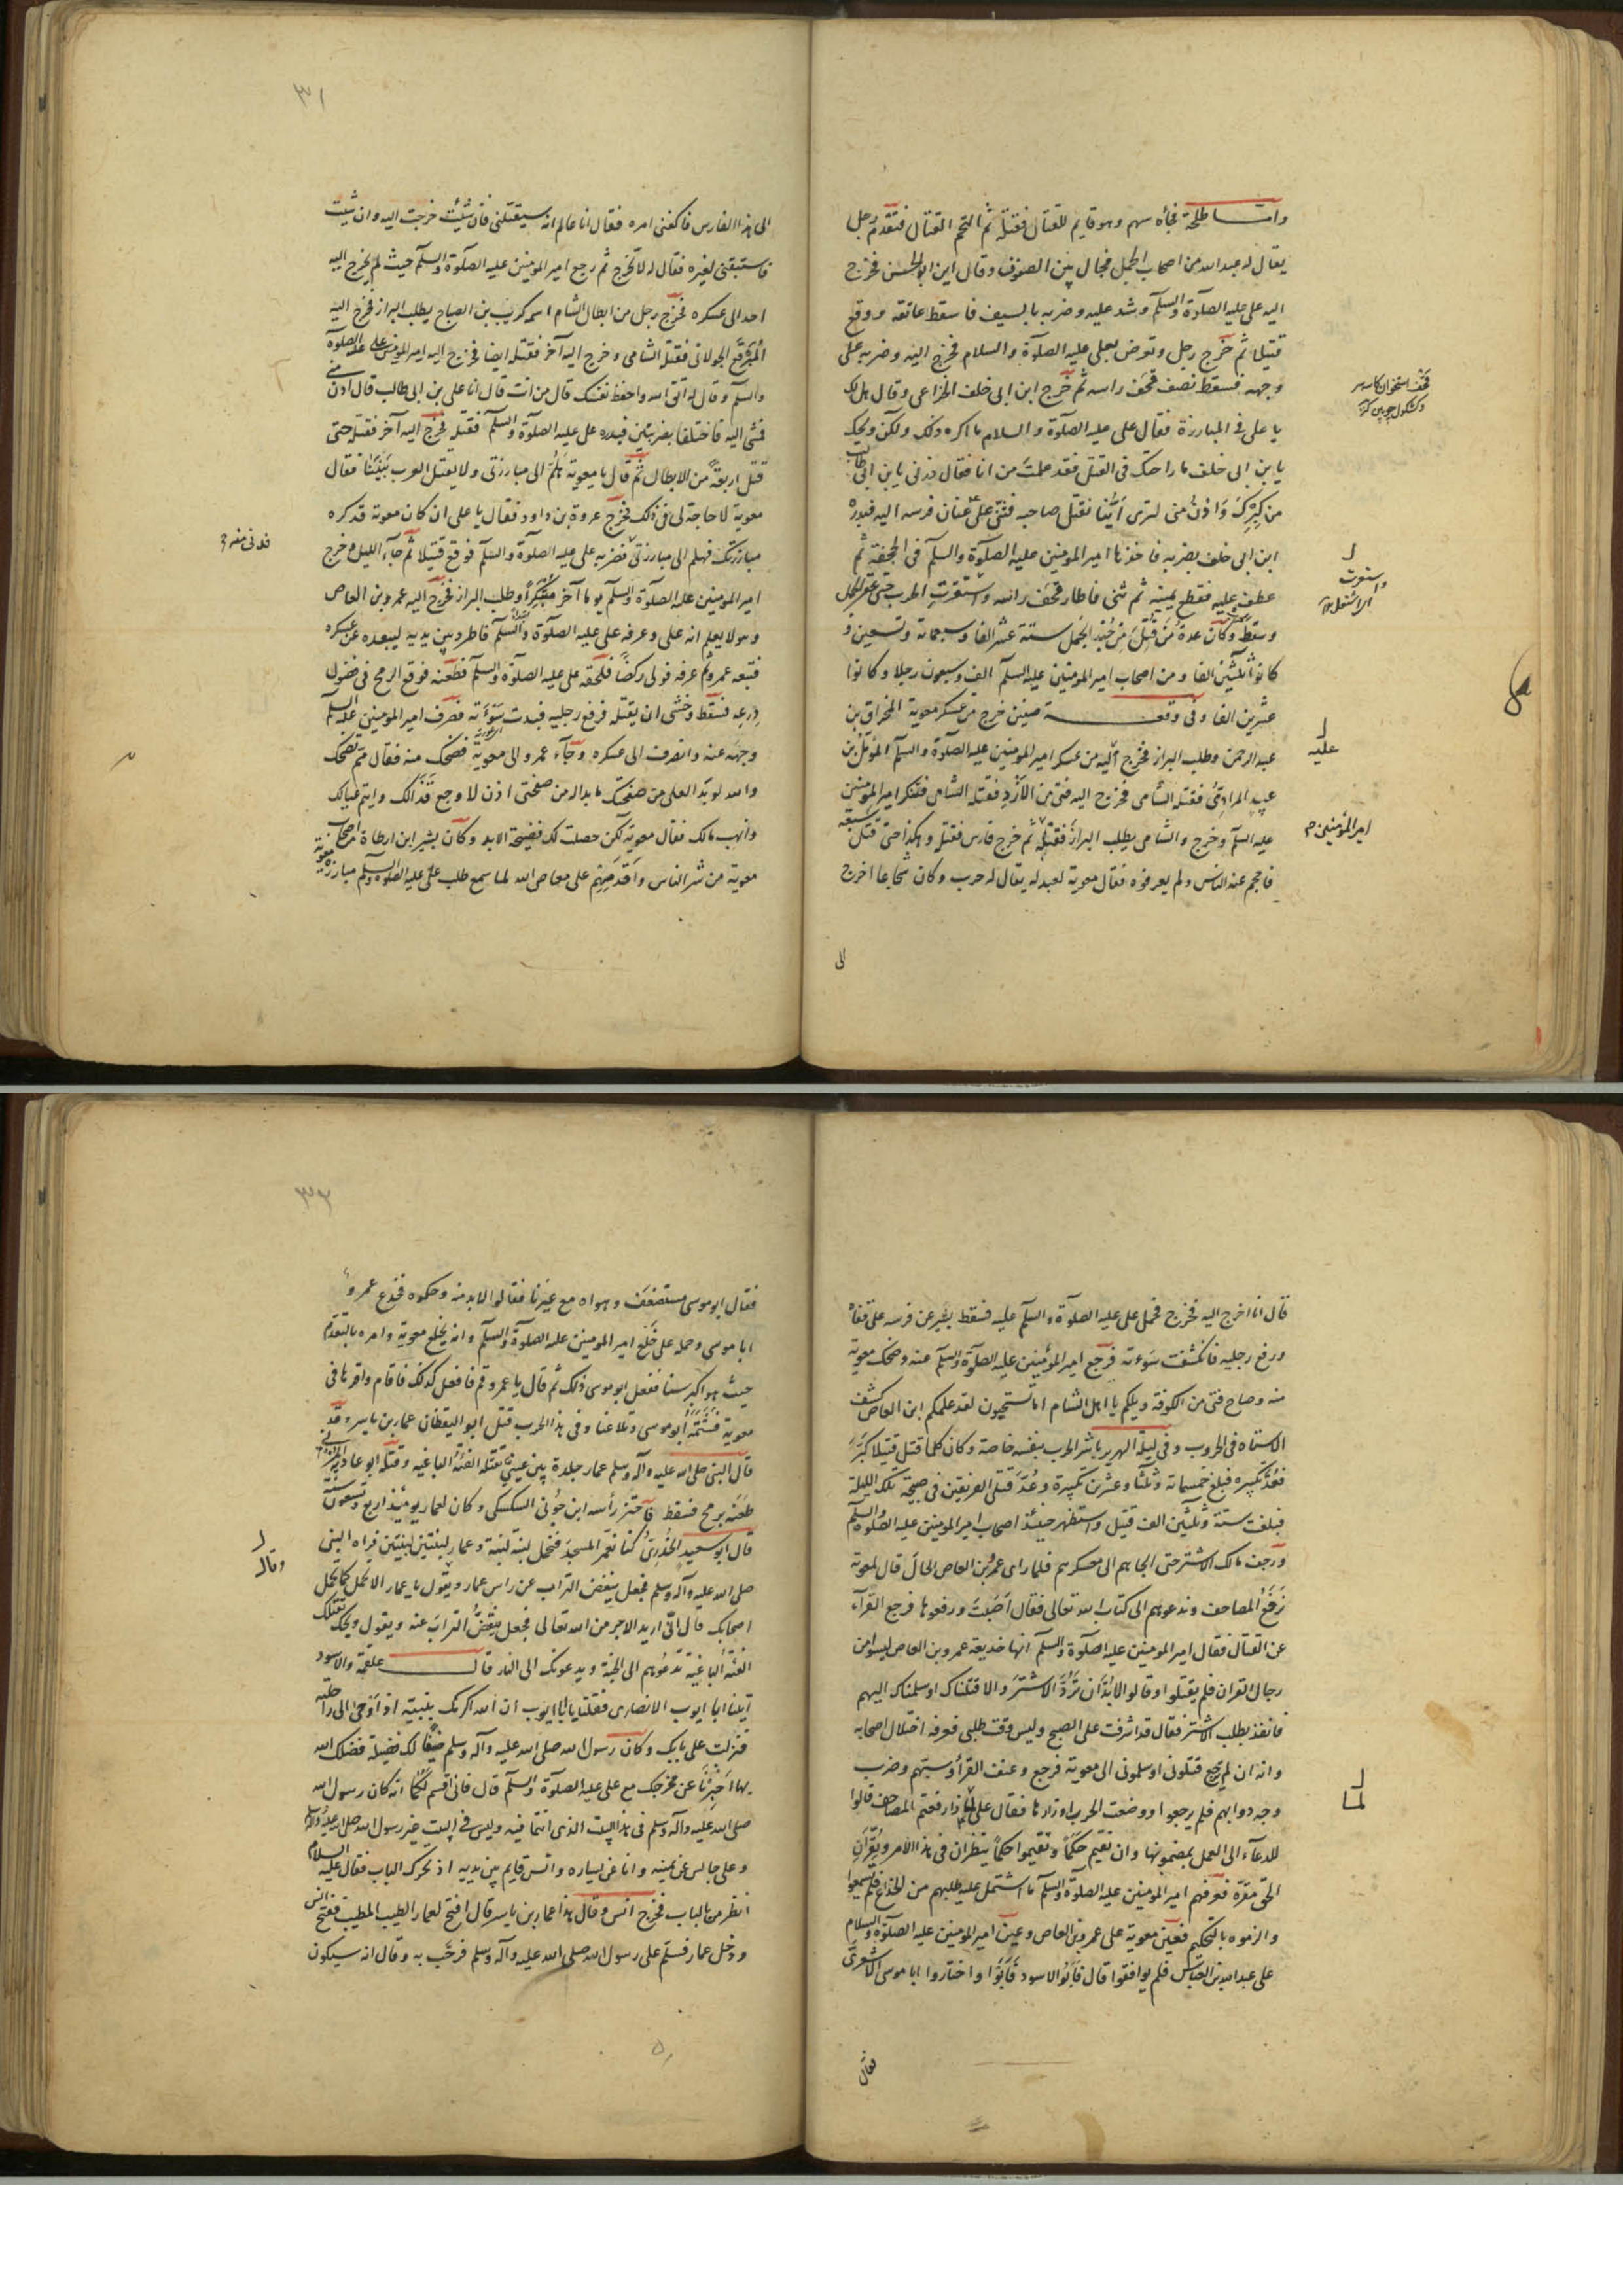 وامّا طلحة فجأه سهم وهو قايم للقتال فقتله ثم التحم القتال فتقدّم رجل
يقال له عبد الله من اصحاب الجمل فجال بين الصفوف وقال اين ابو الحسن فخرج
اليه على عليه الصلوة والسلم وشد عليه وضربه بالسيف فاسقط عاتقه ووقع
قتيلا ثم خرج رجل وتعرض لعلى عليه الصلوة والسلام فخرج اليه وضربه على
وجهه فسقط نصف قحف راسه ثم خرج ابن ابى خلف الخزاعى وقال هل لك
يا على فى المبارزة فقال على عليه الصلوة والسلام ما اكره ذلك ولكن ويحك
يا بن ابى خلف ما راحتك فى القتل فقد علمت من انا فقال ذرنى يا بن ابى طالب
من كبرك وادن منى لترى اينا يقتل صاحبه فثنى على عنان فرسه اليه فبدره
ابن ابى خلف بضربه فاخذها امير المومنين عليه الصلوة والسلم فى الحجفة ثم
عطف عليه فقطع يمينه ثم ثنى فاطار قحف راسه واستعرت الحرب حتى عقر الجمل
وسقط وكان عدة من قتل من جند الجمل ستة عشر الفا وسبعمائة وتسعين و
كانوا ثلثين الفا ومن اصحاب امير المومنين عليه السلم الف وسبعون رجلا وكانوا
عشرين الفا وفى وقعة صفين خرج من عسكر معوية المخراق بن
عبد الرحمن وطلب البراز فخرج اليه من عسكر امير المومنين عليه الصلوة والسلم المؤمل بن
عبيد المرادى فقتله الشامى فخرج اليه فتى من الازد فقتله الشامى فتنكر امير المومنين
عليه السلم وخرج والشامى يطلب البراز فقتله ثم خرج فارس فقتله وهكذا حتى قتل سبعة
فاحجم عنه الناس ولم يعرفوه فقال معوية لعبد له يقال له حرب وكان شجاعا اخرج
الى
قحف استخوان كاسه سر
واستعرت
اى اشتعل نارا
عليه
امير المؤمنين
٣١
الى هذا الفارس فاكفنى امره فقال انا عالم انه سيقتلنى فان شئت خرجت اليه وان شئت
فاستبقنى لغيره فقال له لا تخرج ثم رجع امير المومنين عليه الصلوة والسلم حيث لم يخرج اليه
احد الى عسكره فخرج رجل من ابطال الشام اسمه كريب بن الصباح يطلب البراز فخرج اليه
المبرقع الجولانى فقتله الشامى وخرج اليه آخر فقتله ايضا فخرج اليه امير المومنين على عليه الصلوة
والسلم وقال له اتق الله واحفظ نفسك قال من انت قال انا على بن ابى طالب قال ادن منى
فمشى اليه فاختلفا بضربتين فبدره على عليه الصلوة والسلم فقتله فخرج اليه آخر فقتله حتى
قتل اربعة من الابطال ثم قال يا معوية هلم الى مبارزتى ولا يقتل العرب بيننا فقال
معوية لا حاجة لى فى ذلك فخرج عروة بن داود فقال يا على ان كان معوية قد كره
مبارزتك فهلم الى مبارزتى فضربه على عليه الصلوة والسلم فوقع قتيلا ثم جاء الليل وخرج
امير المومنين عليه الصلوة والسلم يوما آخر متنكرا وطلب البراز فخرج اليه عمرو بن العاص
وهو لا يعلم انه على وعرفه على عليه الصلوة والسلم فاطرد بين يديه ليبعده عن عسكره
فتبعه عمرو ثم عرفه فولى ركضا فلحقه على عليه الصلوة والسلم فطعنه فوقع الرمح فى فضول
درعه فسقط وخشى ان يقتله فرفع رجليه فبدت سوأته فصرف امير المومنين عليه السلم
وجهه عنه وانصرف الى عسكره وجآء عمرو الى معوية فضحك منه فقال مم تضحك
والله لو بدا لعلى من صفحتك ما بدا له من صفحتى اذن لاوجع قذالك وايتم عيالك
وانهب مالك فقال معوية لكن حصلت لك فضيحة الابد وكان بشير ابن ارطاة من اصحاب
معوية من شر الناس واقدمهم على معاصى الله لما سمع طلب على عليه الصلوة والسلم مبارزة معوية
قال انا اخرج اليه فخرج فحمل على عليه الصلوة والسلم عليه فسقط بشير عن فرسه على قفاه
ورفع رجليه فانكشفت سوءته فرجع امير المؤمنين عليه الصلوة والسلم عنه وضحك معوية
منه وصاح فتى من الكوفة ويلكم يا اهل الشام اما تستحيون لقد علمكم ابن العاص كشف
الاستاه فى الحروب وفى ليلة الهرير باشر الحرب بنفسه خاصة وكان كلما قتل قتيلا كبر
فعد تكبيره فبلغ خمسمائة وثلثا وعشرين تكبيرة وعد قتلى الفريقين فى صبيحة تلك الليلة
فبلغت ستة وثلثين الف قتيل واستظهر حينئذ اصحاب امير المومنين عليه الصلوة والسلم
وزحف مالك الاشتر حتى الجاهم الى معسكرهم فلما راى عمرو بن العاص الحال قال لمعوية
نرفع المصاحف وندعوهم الى كتاب الله تعالى فقال اصبت ورفعوها فرجع القرآء
عن القتال فقال امير المومنين عليه الصلوة والسلم انها خديعة عمرو بن العاص ليسوا من
رجال القران فلم يقبلوا وقالوا لابد ان ترد الاشتر والا قتلناك او سلمناك اليهم
فانفذ بطلب الاشتر فقال قد اشرفت على الصبح وليس وقت طلبى فعرفه اختلال اصحابه
وانه ان لم يرجع قتلونى او سلمونى الى معوية فرجع وعنف القرآ وسبهم وضرب
وجه دوابهم فلم يرجعوا ووضعت الحرب اوزارها فقال على لماذا رفعتم المصاحف قالوا
للدعآء الى العمل بمضمونها وان نقيم حكما وتقيموا حكما ينظران فى هذا الامر ويقران
الحق مقره فعرفهم امير المومنين عليه الصلوة والسلم ما اشتمل عليه طلبهم من الخداع فلم يسمعوا
والزموه بالتحكيم فعين معوية على عمرو بن العاص وعين امير المومنين عليه الصلوة والسلام
على عبد الله بن العباس فلم يوافقوا قال فابو الاسود فابوا واختاروا ابا موسى الاشعرى
فقال
لما
٣٢
فقال ابو موسى مستضعف وهواه مع غيرنا فقالوا لابد منه وحكموه فخدع عمرو
ابا موسى وحمله على خلع امير المومنين عليه الصلوة والسلم وانه يخلع معوية وامره بالتقدم
حيث هو اكبر سنا ففعل ابو موسى ذلك ثم قال يا عمرو قم فافعل كذلك فقام واقرها فى
معوية فشتمه ابو موسى وتلاعنا وفى هذا الحرب قتل ابو اليقظان عمار بن ياسر وقد
قال النبى صلى الله عليه وآله وسلم عمار جلدة بين عينى تقتله الفئة الباغية وقتله ابو عادية
طعنه برمح فسقط فاحتز رأسه ابن جونى السكسكى وكان لعمار يومئذ اربع وتسعون سنة
قال ابو سعيد الخدرى كنا نعمر المسجد فنحمل لبنة لبنة وعمار لبنتين لبنتين فراه النبى
صلى الله عليه وآله وسلم فجعل ينفض التراب عن راس عمار ويقول يا عمار الا تحمل كما يحمل
اصحابك قال انى اريد الاجر من الله تعالى فجعل ينفض التراب عنه ويقول ويحك تقتلك
الفئة الباغية تدعوهم الى الجنة ويدعونك الى النار قال علقمة والاسود
اتينا ابا ايوب الانصارى فقلنا يا ابا ايوب ان الله اكرمك بنبيه اذ اوحى الى راحلته
فنزلت على بابك وكان رسول الله صلى الله عليه وآله وسلم ضيفا لك فضيلة فضلك الله
بها اخبرنا عن مخرجك مع على عليه الصلوة والسلم قال فانى اقسم لكما انه كان رسول الله
صلى الله عليه وآله وسلم فى هذا البيت الذى انتما فيه وليس فى البيت غير رسول الله صلى الله عليه وآله
وعلى جالس عن يمينه وانا عن يساره وانس قايم بين يديه اذ تحرك الباب فقال عليه السلام
انظر من بالباب فخرج انس وقال هذا عمار بن ياسر قال افتح لعمار الطيب المطيب ففتح انس
ودخل عمار فسلم على رسول الله صلى الله عليه وآله وسلم فرحب به وقال انه سيكون
وقال